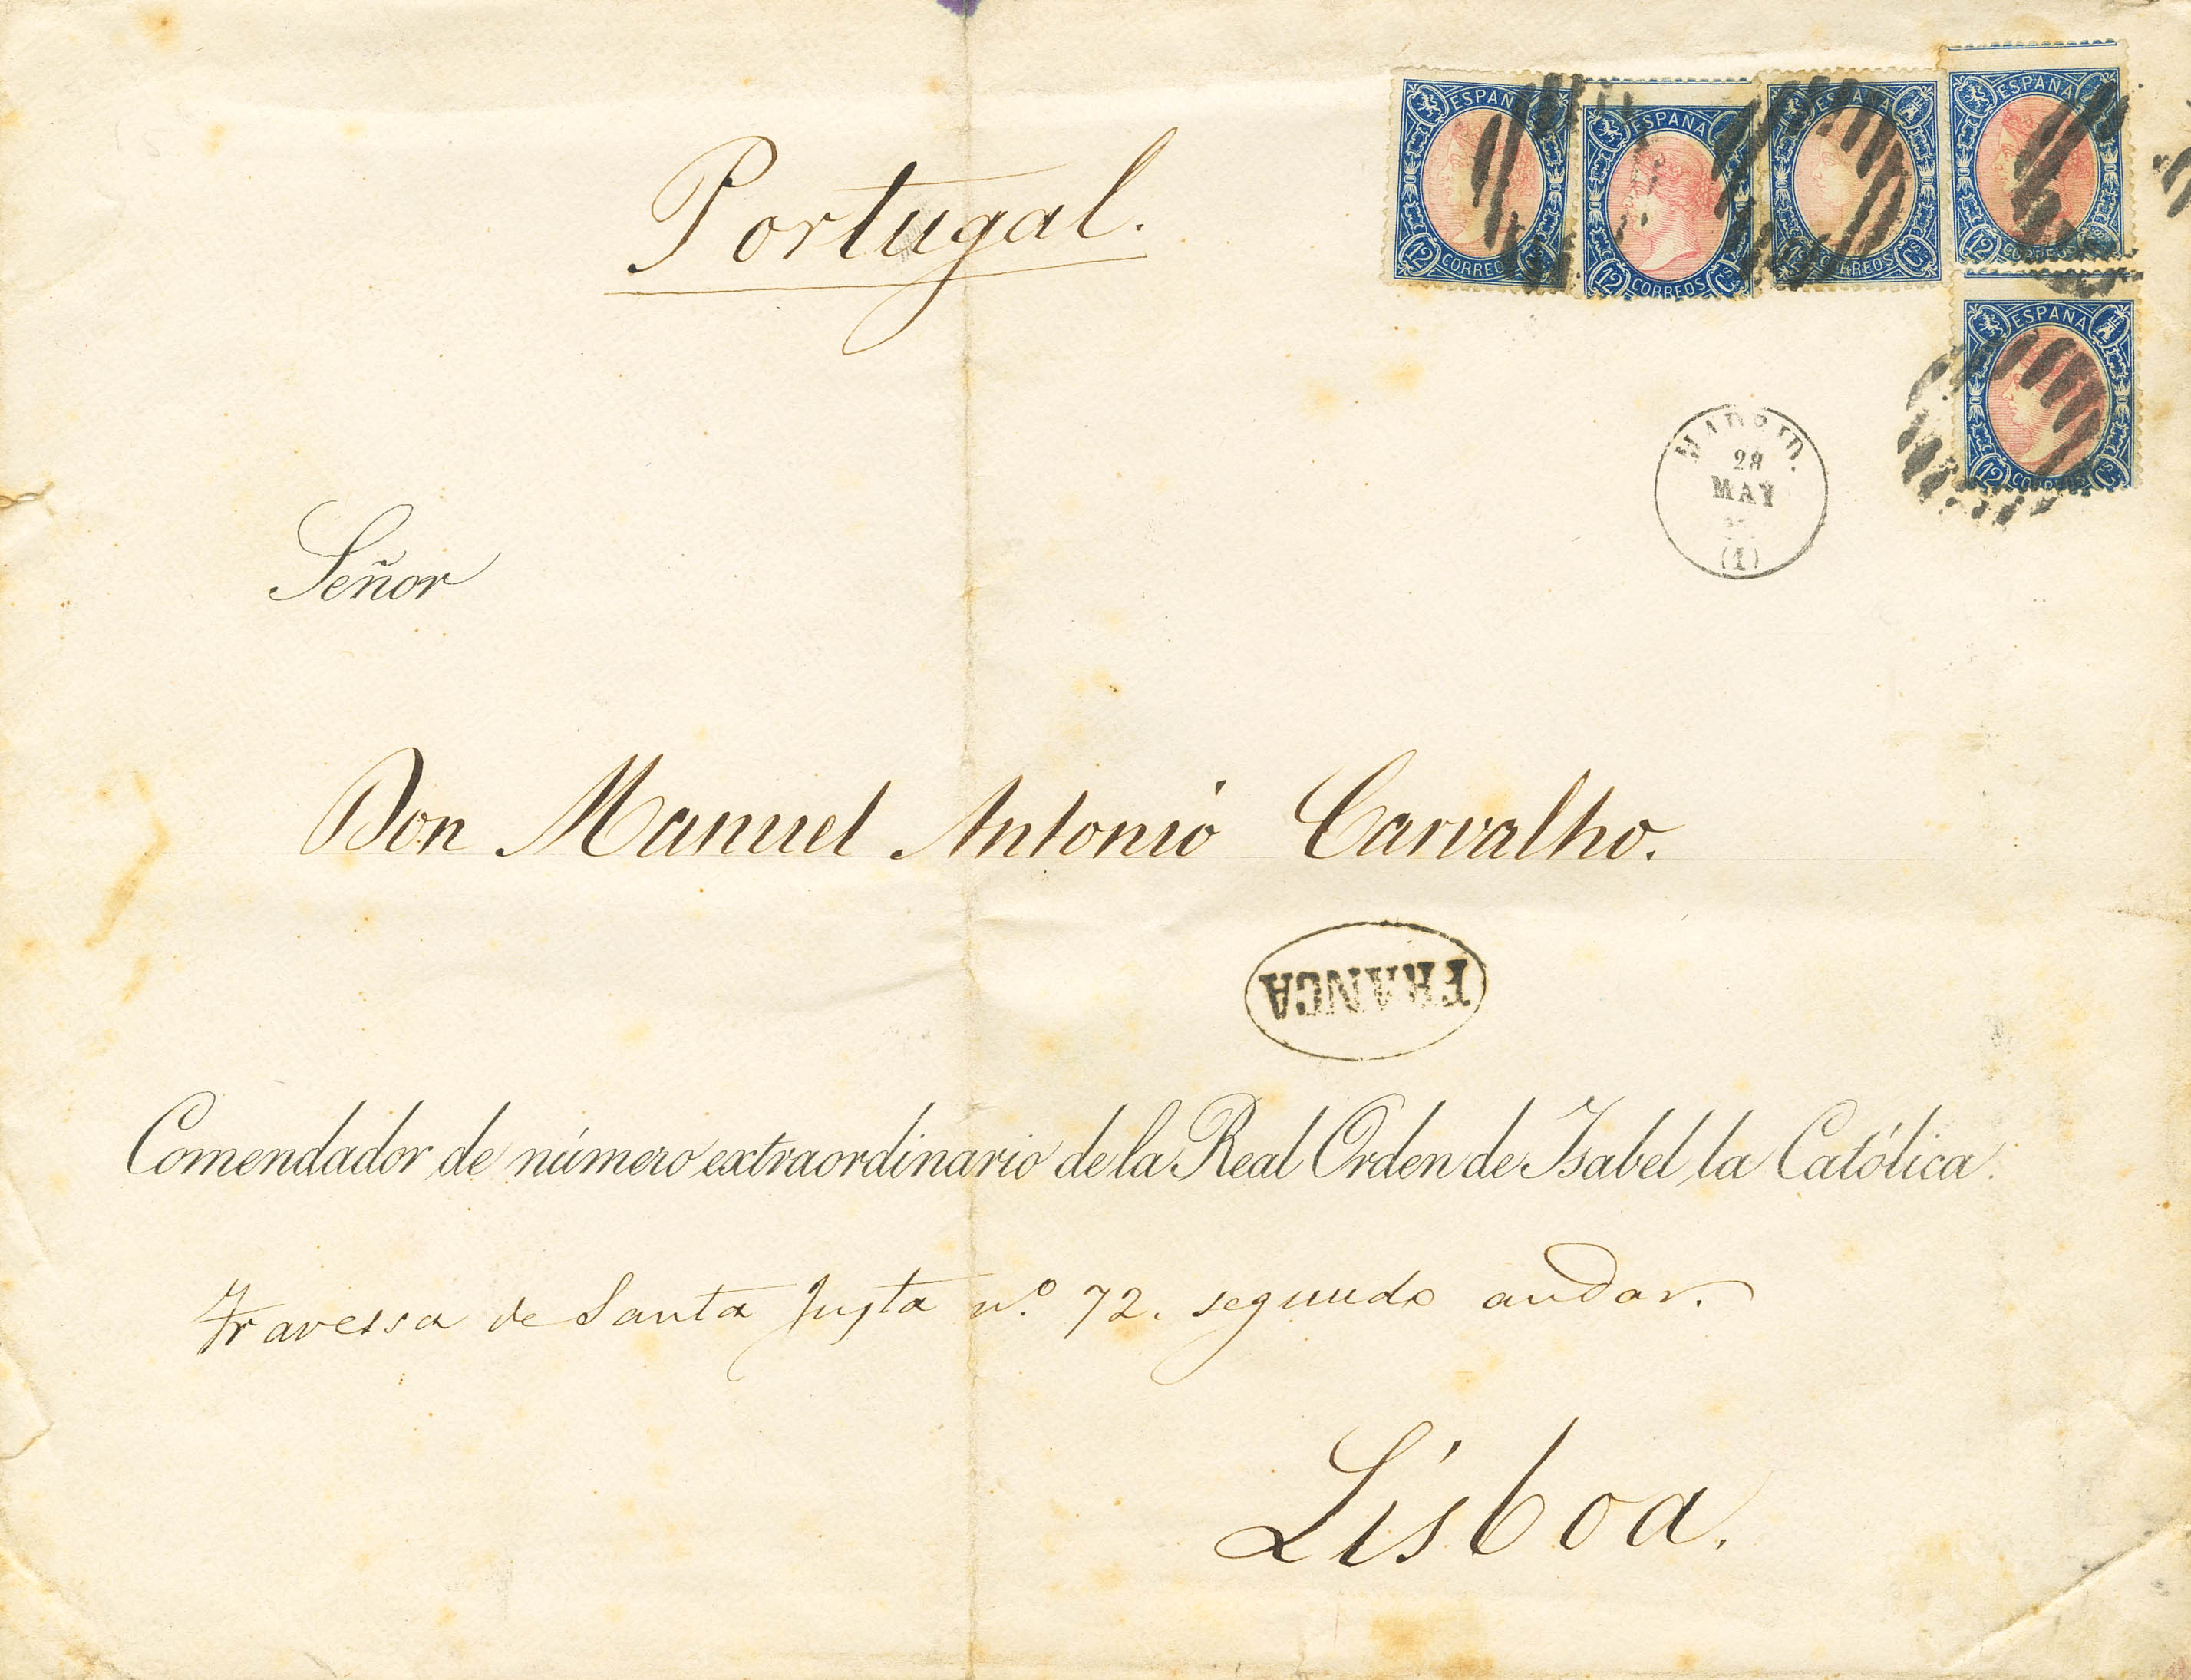 Portugal.
ESPAÑA
12 CORREOS
ESPAÑA
12 CORREOS Cs
ESPAÑA
12 CORREOS Cs
ESPAÑA
12 CORREOS
ESPAÑA
12 CORREOS Cs
MADRID.
28
MAY
(1)
Señor
Don Manuel Antonio Carvalho.
FRANCA
Comendador de número extraordinario de la Real Orden de Isabel la Católica.
Travessa de Santa Justa n.º 72. segundo andar.
Lisboa.